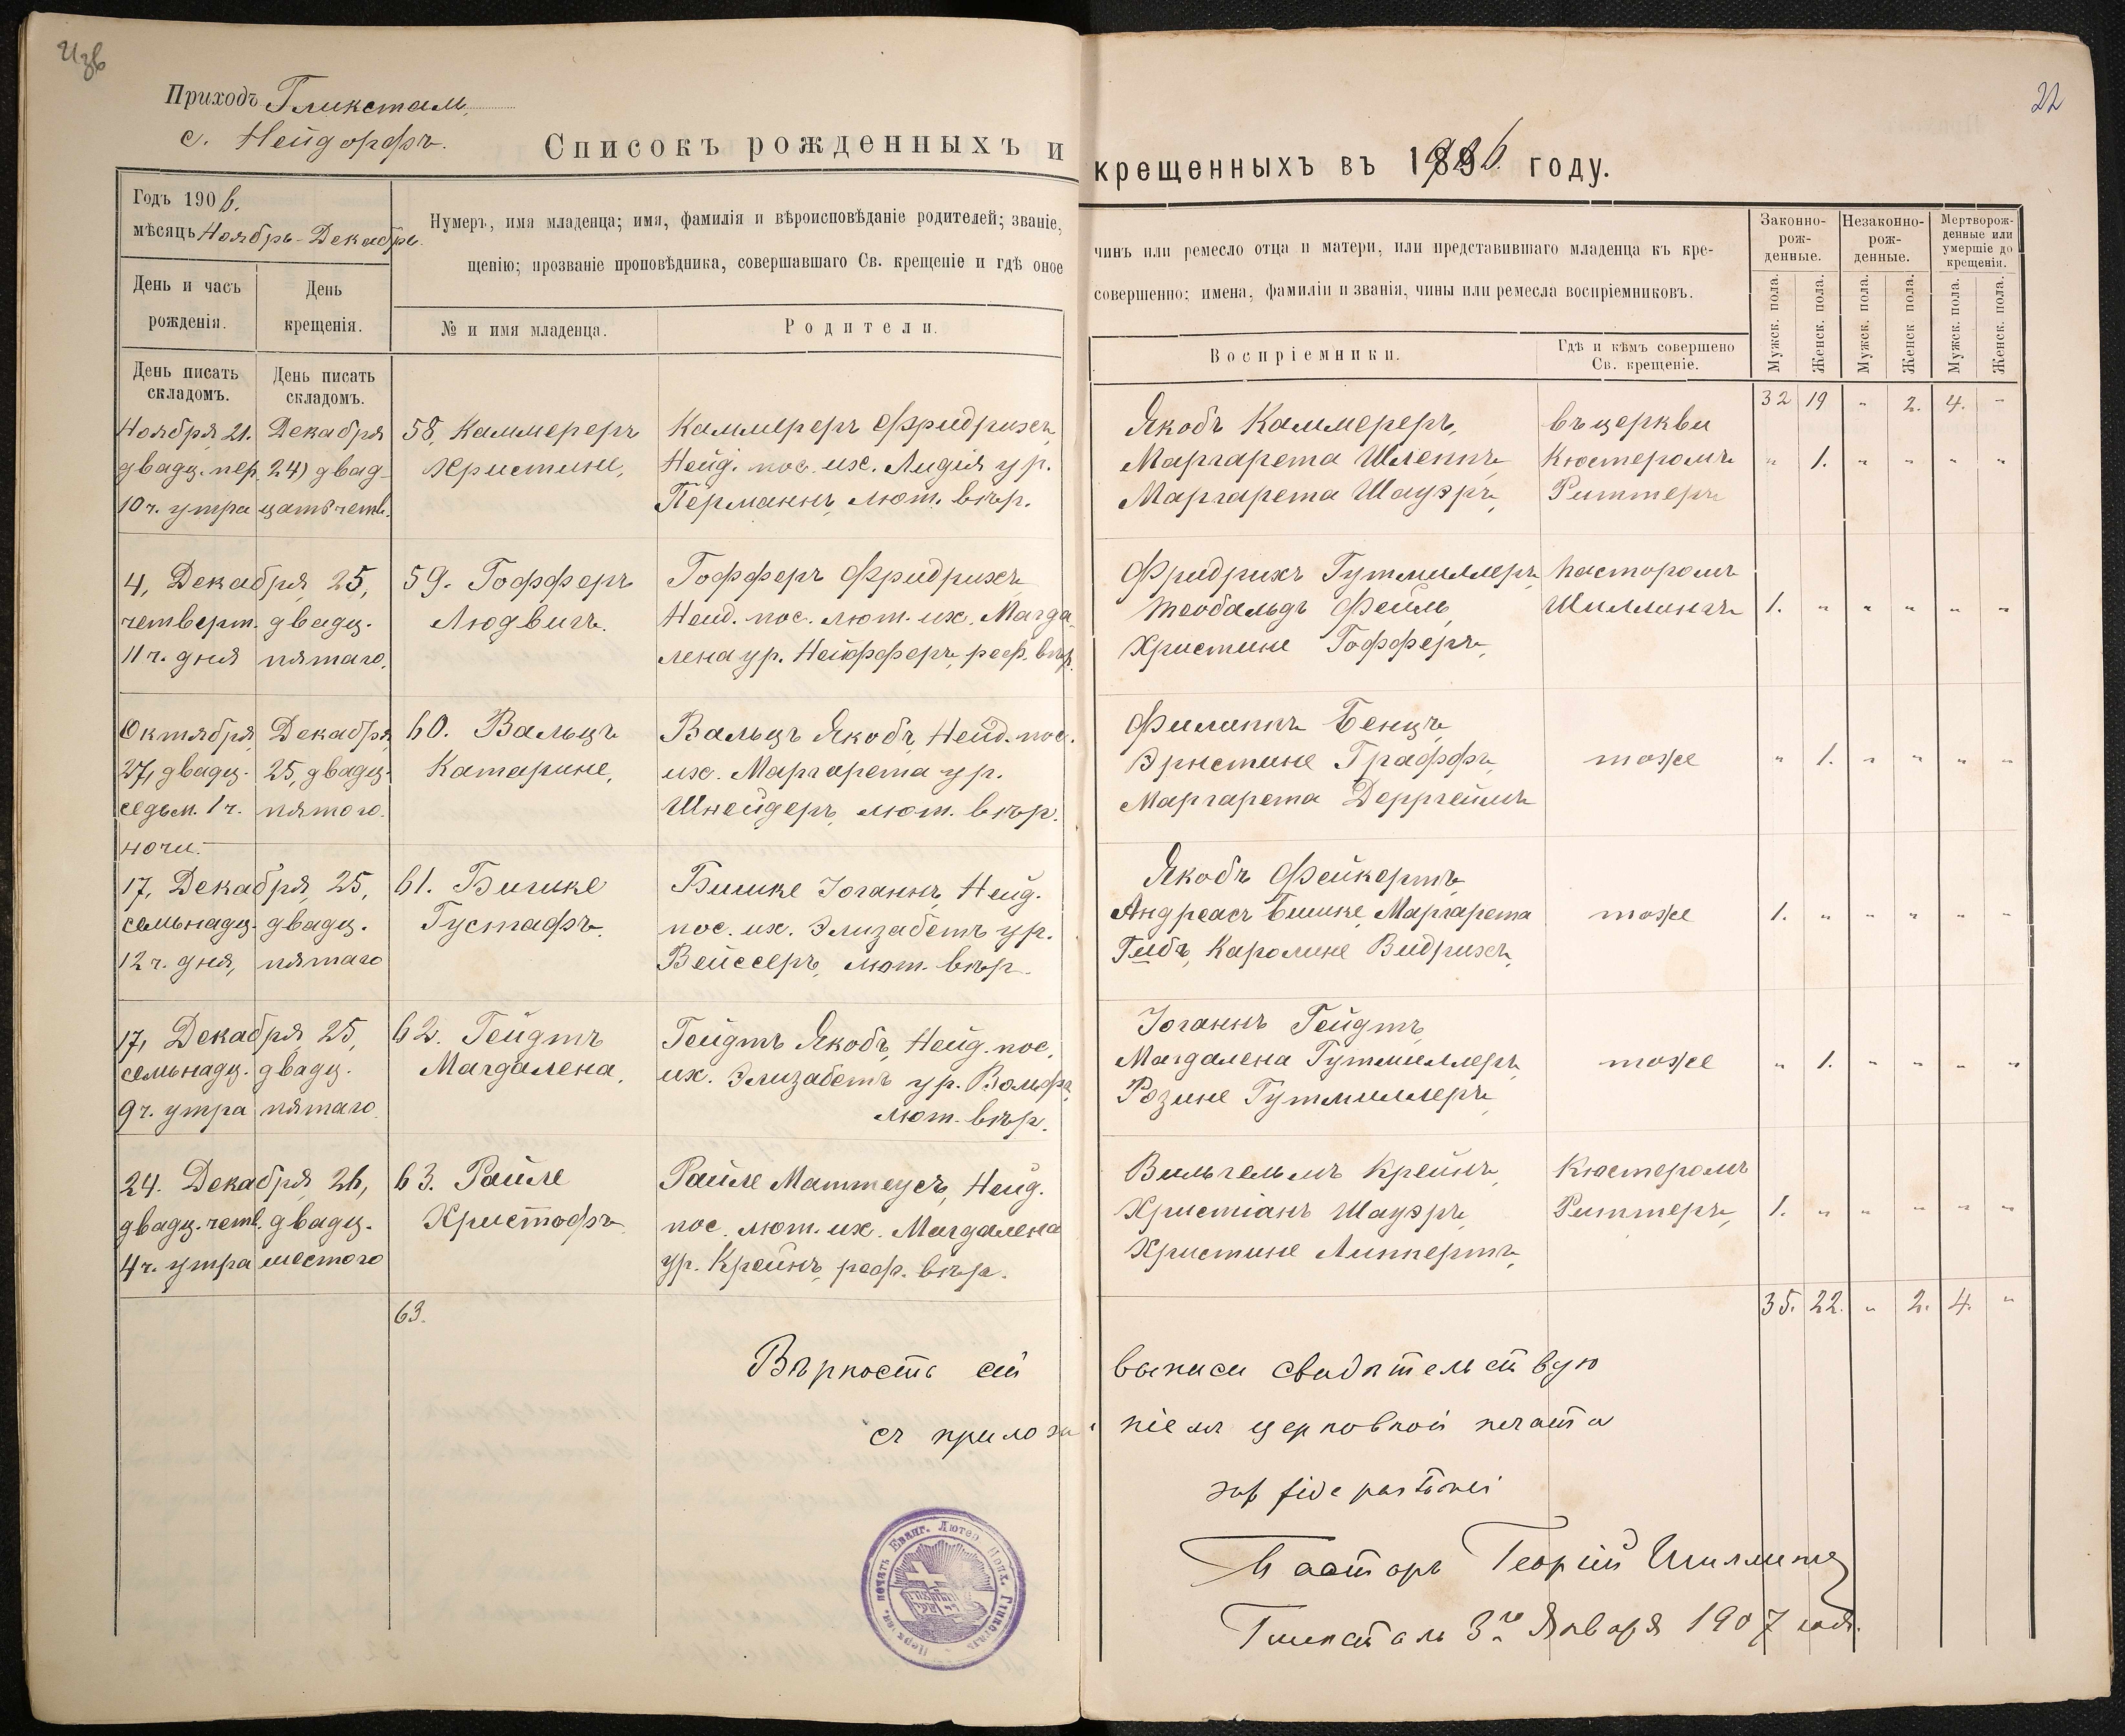 Изв
22
Приходъ Гликсталь,
с. Нейдорфъ.
Списокъ рожденныхъ и крещенныхъ въ 1906. году.
Годъ 1906.
мѣсяцъ Ноябрь-Декабрь.
Нумеръ, имя младенца; имя, фамилія и вѣроисповѣданіе родителей; званіе, чинъ или ремесло отца и матери, или представившаго младенца къ кре-
щенію; прозваніе проповѣдника, совершавшаго Св. крещеніе и гдѣ оное совершенно; имена, фамиліи и званія, чины или ремесла воспріемниковъ.
Законно-
рож-
денные.
Незаконно-
рож-
денные.
Мертворож-
денные или
умершіе до
крещенія.
День и часъ
рожденія.
День
крещенія.
№ и имя младенца.
Родители.
Воспріемники.
Гдѣ и кѣмъ совершено
Св. крещеніе.
Мужск. пола.
Женск. пола.
Мужск. пола.
Женск. пола.
Мужск. пола.
Женск. пола.
День писать
складомъ.
День писать
складомъ.
32 19 " 2. 4. "
Ноября, 21. Декабря 58. Каммереръ Каммереръ Фридрихъ, Якобъ Каммереръ, въ церкви
двадц. пер. 24) двад- Христине, Нейд. пос. их. Лидія ур. Маргарета Шлеппъ Кюстеромъ " 1. " " " "
10 ч. утра цать четв. Перманнъ, лют. вѣр. Маргарета Шауэръ, Риттеръ
4, Декабря, 25, 59. Гофферъ Гофферъ Фридрихъ Фридрихъ Гутмиллеръ, пасторомъ
четверт. двадц. Людвигъ. Нейд. пос. лют. их. Магда- Теобальдъ Фейль, Шиллингъ 1. " " " " "
11 ч. дня пятаго, лена ур. Нейфферъ, реф. вѣр. Христине Гофферъ,
Октября, Декабря, 60. Вальцъ Вальцъ Якобъ, Нейд. пос. Филиппъ Бенцъ,
27, двадц. 25, двадц. Катарине, их. Маргарета ур. Эрнстине Граффъ, тоже " 1. " " " "
седьм. 1 ч. пятого. Шнейдеръ, лют. вѣр. Маргарета Дерргеймъ
ночи.
17, Декабря, 25, 61. Бишке Бишке Іоганнъ, Нейд. Якобъ Фейкертъ,
семьнадц. двадц. Густафъ. пос. их. Элизабетъ ур. Андреасъ Бишке, Маргарета тоже 1. " " " " "
12 ч. дня, пятаго Вейссеръ, лют. вѣр. Гибъ, Каролине Видрихъ,
17, Декабря, 25, 62. Гейдтъ Гейдтъ Якобъ, Нейд. пос. Іоганнъ Гейдтъ,
семьнадц. двадц. Магдалена, их. Элизабетъ ур. Вольфъ, Магдалена Гутмиллеръ, тоже " 1. " " " "
9 ч. утра пятаго. лют. вѣр. Розине Гутмиллеръ,
24. Декабря, 26, 63. Райле Райле Маттеусъ, Нейд. Вильгельмъ Крейнъ, Кюстеромъ
двадц. четв. двадц. Христофъ. пос. лют. их. Магдалена Христіанъ Шауэръ, Риттеръ, 1. " " " " "
4 ч. утра шестого ур. Крейнъ, реф. вѣр. Христине Липпертъ,
63. 35. 22. " 2. 4. "
Вѣрность сей выписи свидѣтельствую
съ приложеніемъ церковной печати
sub fide pastorali
Пасторъ Георгій Шиллингъ
Гликсталь 3го Января 1907 года.
Церковн. печать Еванг. Лютер. Прих. Гликсталь